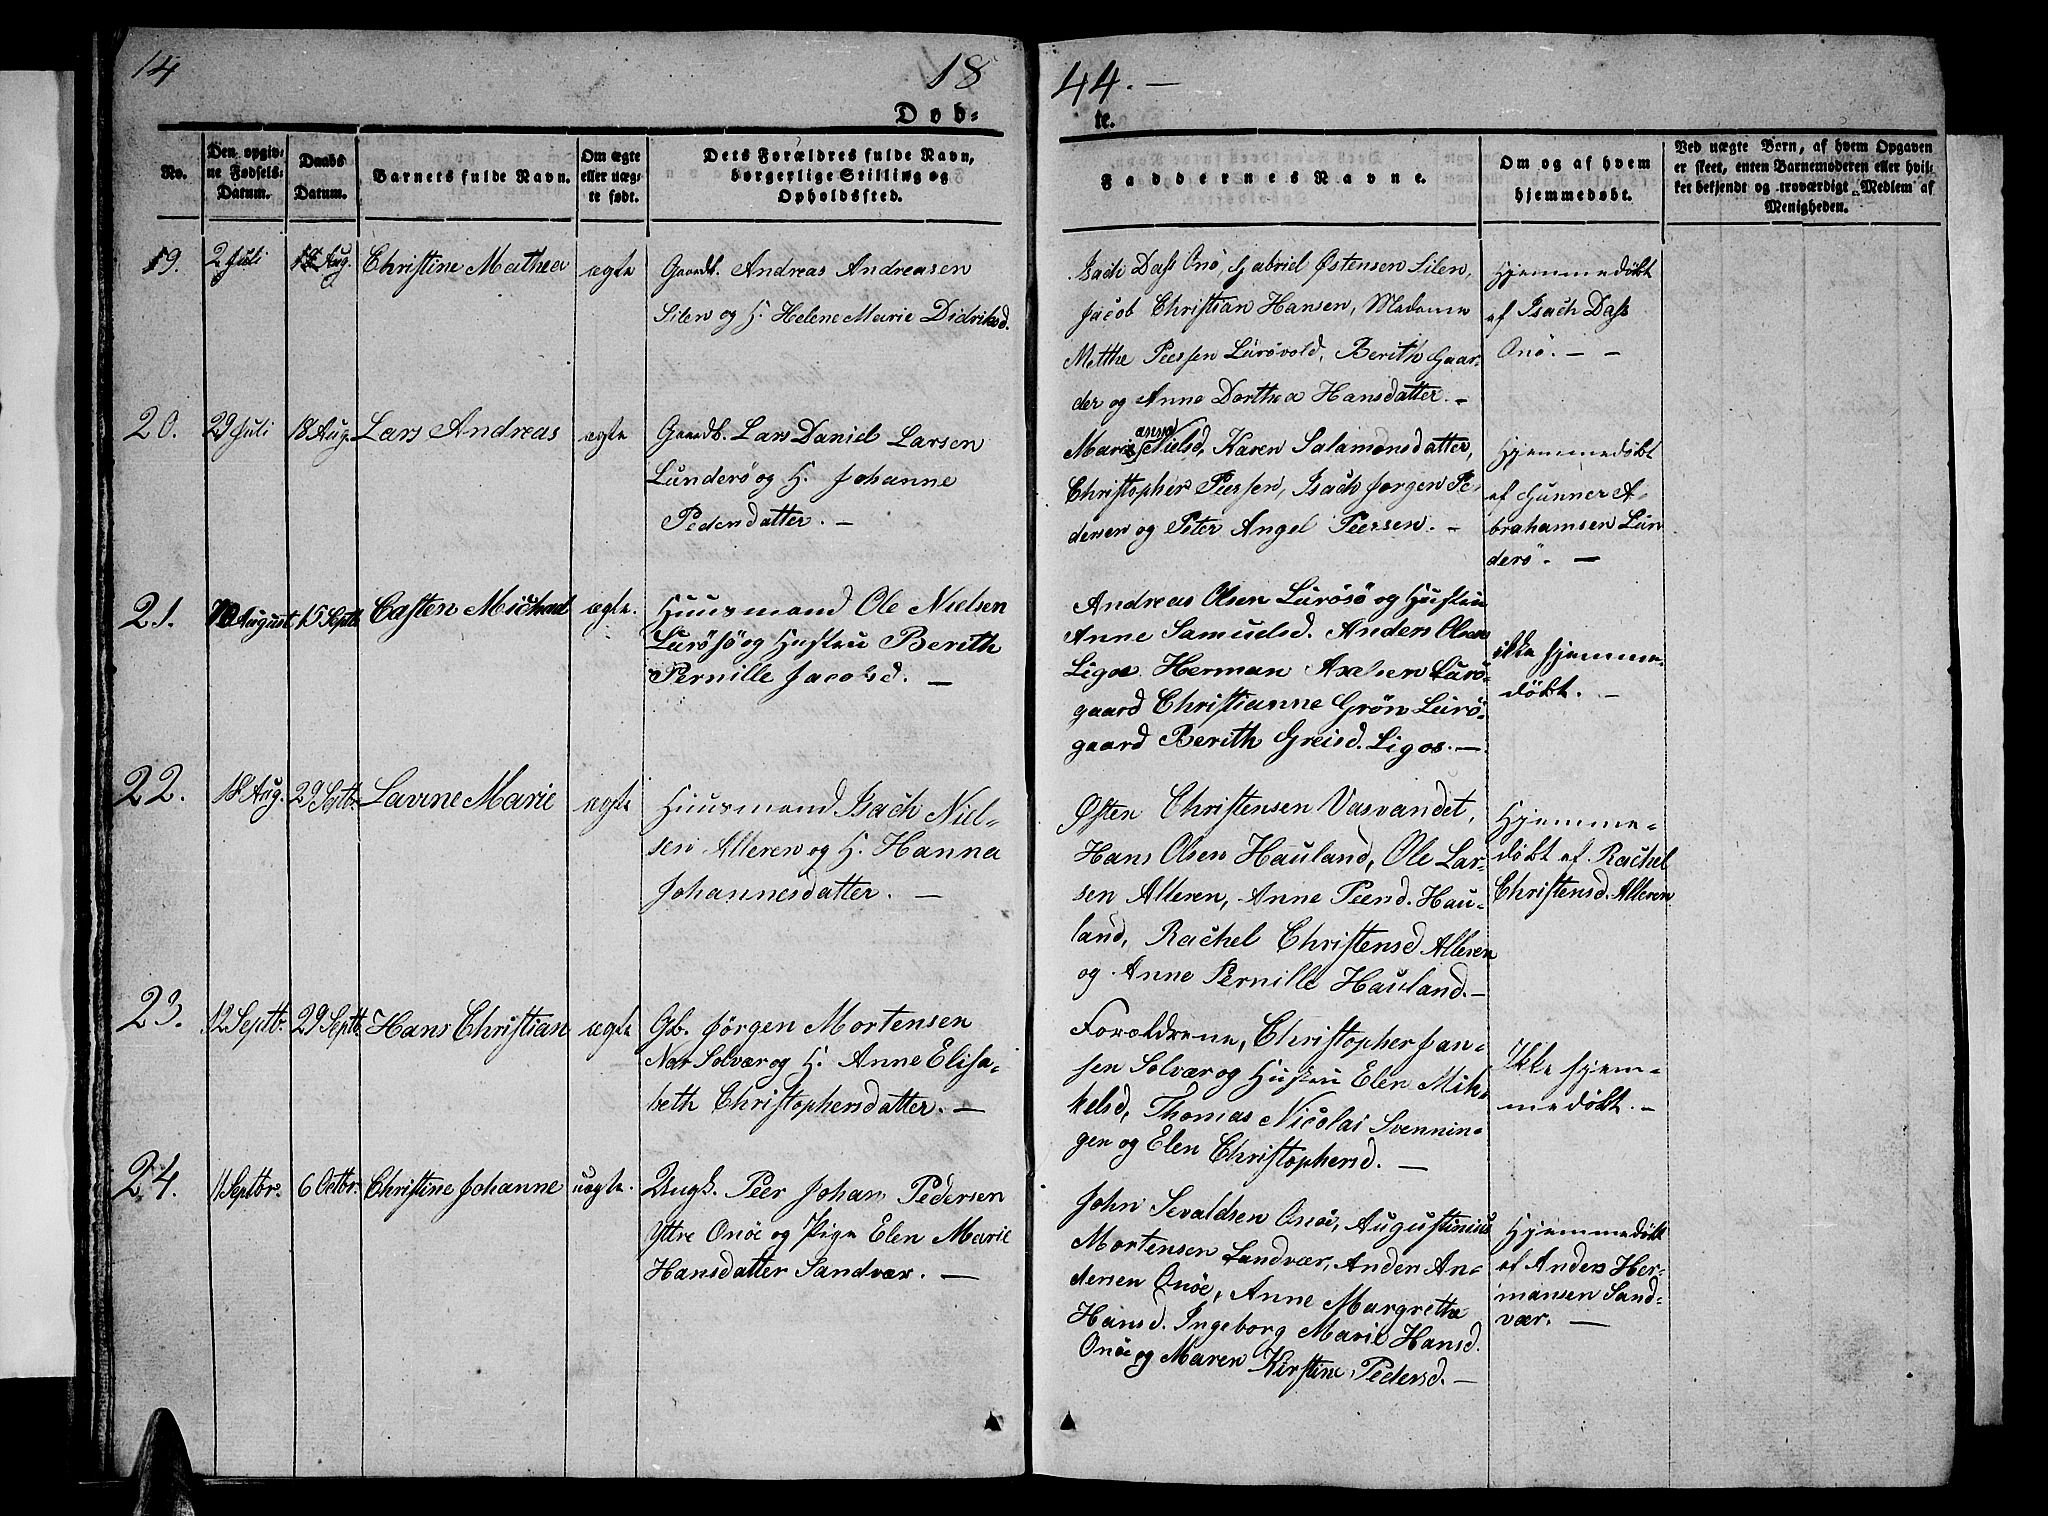 14
18
44. —
Døb-
te.
No.
Den opgiv-
ne Fødsels-
Datum.
Daabs
Datum.
Barnets fulde Navn.
Om ægte
eller uæg-
te født.
Dets Forældres fulde Navn,
borgerlige Stilling og
Opholdssted.
Faddernes Navne.
Om og af hvem
hjemmedøbt.
Ved uægte Børn, af hvem Opgaven
er skeet, enten Barnemoderen eller hvil-
ket bekjendt og troværdigt Medlem af
Menigheden.
19.
2 Juli
Aug.
Christine Mathea
ægte
Gaardb. Andreas Andreasen
Silen og H. Helene Marie Didriksd.
Isach Dass Onö, Gabriel Östensen Silen,
Jacob Christian Hansen, Madame
Metthe Peersen Lurövold, Berith Gaar-
der og Anne Dorthea Hansdatter. —
Hjemmedöbt
af Isach Dass
Onö. — —
20.
29 Juli
18 Aug.
Lars Andreas
ægte
Gaardb. Lars Daniel Larsen
Lunderö og H. Johanne
Pedersdatter. —
anna
Marie Nielsd, Karen Salamonsdatter,
Christopher Peersen, Isach Jörgen Pe-
dersen og Peter Angel Peersen. —
Hjemmedöbt
af Gunner A-
brahamsen Lun
derö. —
21.
August
15 Septb.
Casten Michael
ægte.
Huusmand Ole Nielsen
Lurösö og Hustru Berith
Pernille Jacobsd. —
Andreas Olsen Lurösö og Hustru
Anne Samuelsd. Anders Olsen
Ligos. Herman Axelsen Lurö-
gaard Christianne Grön Lurö-
gaard Berith Greisd. Ligos. —
ikke hjemme-
döbt. —
22.
18 Aug.
29 Septbr.
Lavine Marie
ægte
Huusmand Isach Niel-
sen Alleren og H. Hanna
Johannesdatter. —
Östen Christensen Vasvandet,
Hans Olsen Hauland, Ole Lar-
sen Alleren, Anne Peersd. Hau-
land, Rachel Christensd Alleren
og Anne Pernille Hauland. —
Hjemme-
döbt af Rachel
Christensd. Alleren
23.
12 Septbr.
29 Septb.
Hans Christian
ægte
Gb. Jörgen Mortensen
Nar Solvær og H. Anne Elisa-
beth Christophersdatter. —
Foreldrene, Christopher Jan-
sen Solvær og Hustru Elen Mik-
kelsd, Thomas Nicolai Svennin-
gen og Elen Christophersd. —
Ikke hjem-
medöbt. —
24.
11 Septbr.
6 Octbr.
Christine Johanne
uægte.
Ungk. Peer Johan Pedersen
Yttre Onöe og Pige Elen Marie
Hansdatter Sandvær. —
John Sevaldsen Onöe, Augustinius
Mortensen Sandvær, Anders An-
dersen Onöe, Anne Margrethe
Hansd. Ingeborg Marie Hansd.
Onöe og Maren Kirstine Pedersd. —
Hjemmedöbt
af Anders Her-
mansen Sand-
vær. —